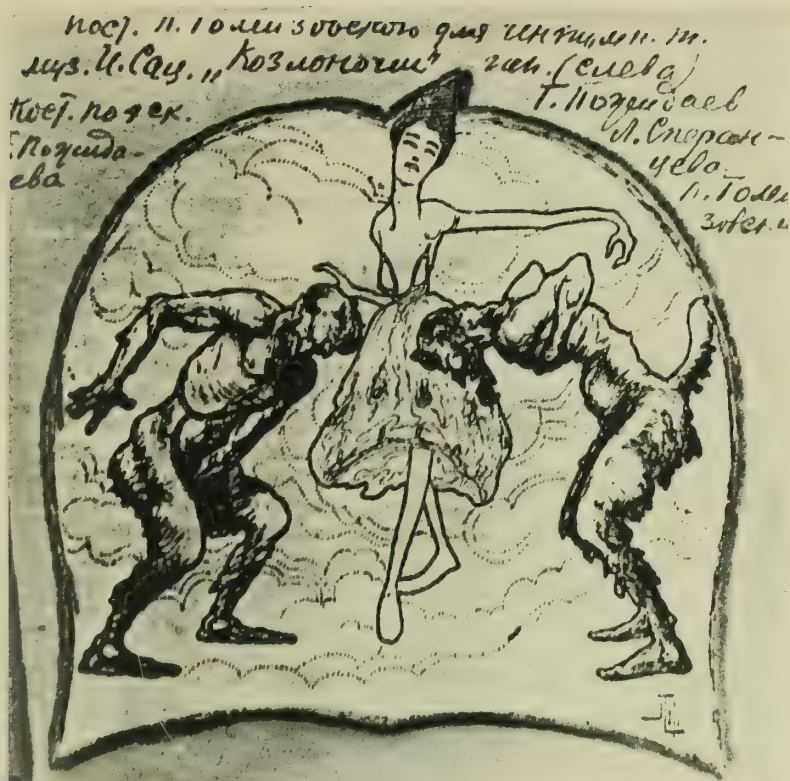 пост. П. Голейзовского для интимн. т.
муз. И. Сац. „Козлоногие" тан. (слева)
Кост. по эск.
Г. Пожидаев
Г. Пожида-
Л. Сперан-
ева
цева
П. Голей
зовски